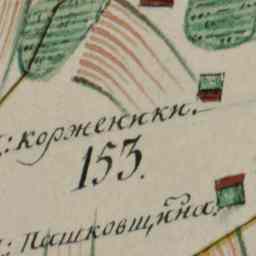 : корженики.
153.
: пашковщина.